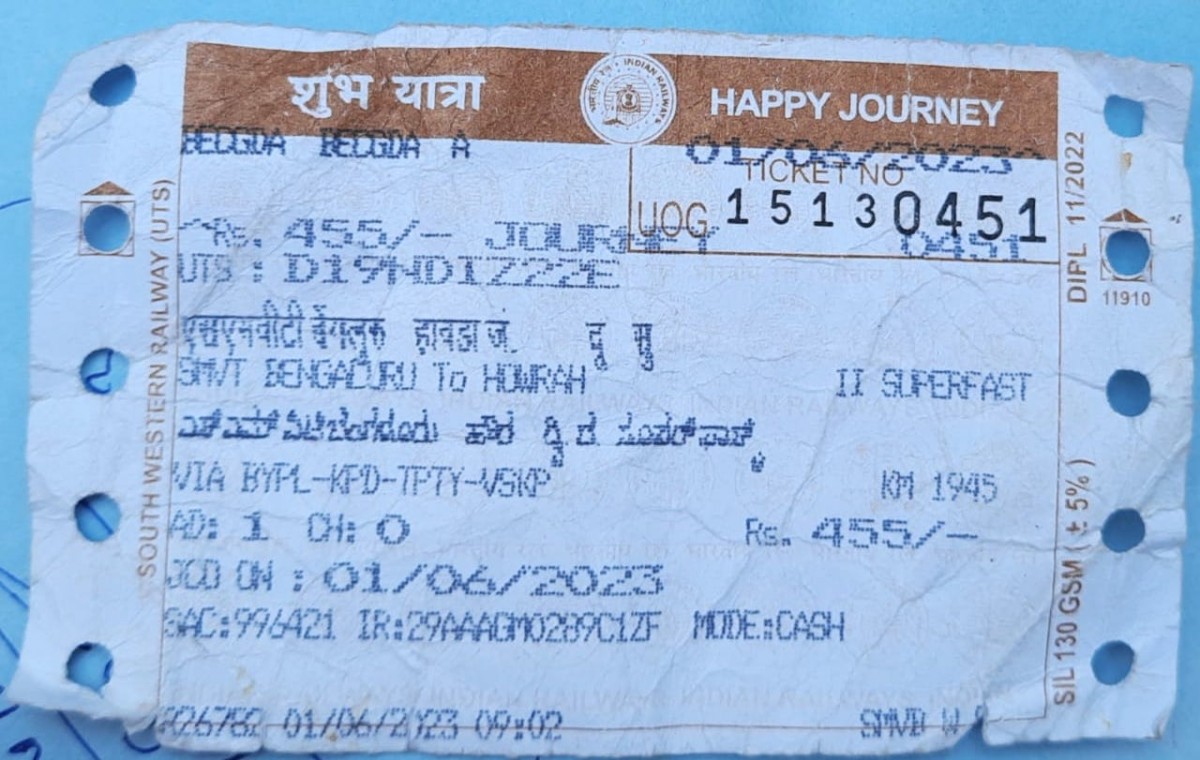 शुभ यात्रा
INDIAN RAILWAYS
HAPPY JOURNEY
01/06/2023
TICKET NO
UOG 15130451
Rs. 455/- JOURNEY 0451
UTS : D19ND1Z22E
एसएमवीटी बेंगलुरु हावडा जं. द्वि सु
SMVT BENGALURU To HOWRAH II SUPERFAST
ಎಸ್ಎಮ್ವಿಟಿಬೆಂಗಳೂರು ಹೌರ ದ್ವಿ ದ ಸೂಪರ್ಫಾಸ್ಟ್
VIA BYPL-KPD-TPTY-VSKP KM 1945
AD: 1 CH: 0 Rs. 455/-
JCD ON : 01/06/2023
SAC:996421 IR:29AAAGM0289C1ZF MODE:CASH
01/06/2023 09:02 SMVB W
SOUTH WESTERN RAILWAY (UTS)
DIPL 11/2022
11910
SIL 130 GSM ( ± 5% )